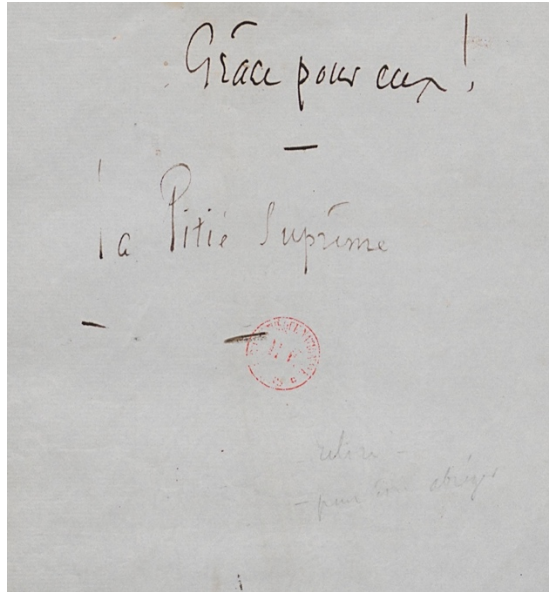 Grâce pour eux !
—
la Pitié Suprême
— —
relire –
– pour